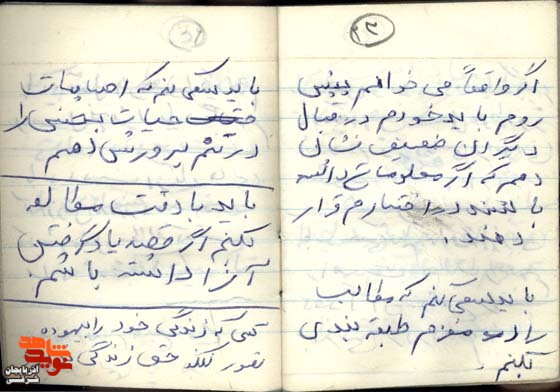 ۳۲
اگر واقعاً می خواهم پیش
روم باید خودم در قبال
دیگران ضعیف نشان
دهم که اگر معلومات داشته
باشند در اختیارم قرار
دهند.
باید سعی کنم که مطالب
را در مغزم طبقه بندی
بکنم.
باید سعی کنم که احساسات
حیات بخشی را
در تنم پرورش دهم
باید با دقت مطالعه
بکنم اگر قصد یاد گرفتن
آنرا داشته باشم.
کسی که زندگی خود را بیهوده
تصور نکند حق زندگی
نوید شاهد
آذربایجان شرقی